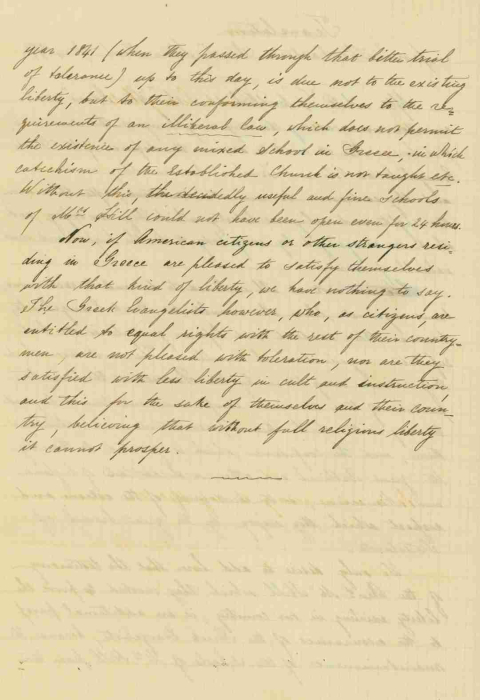 year 1841 (when they passed through that bitter trial
of tolerance) up to this day, is due not to the existing
liberty, but to their conforming themselves to the re-
quirements of an illiberal law, which does not permit
the existence of any mixed School in Greece, in which
catechism of the Established Church is not taught etc.
Without this, the decidedly useful and fine Schools
of Mrs Hill could not have been open even for 24 hours.
Now, if American citizens or other strangers resi-
ding in Greece are pleased to satisfy themselves
with that kind of liberty, we have nothing to say.
The Greek Evangelists however, who, as citizens, are
entitled to equal rights with the rest of their country-
men, are not pleased with toleration, nor are they
satisfied with less liberty in cult and instruction,
and this for the sake of themselves and their coun-
try, believing that without full religious liberty
it cannot prosper.